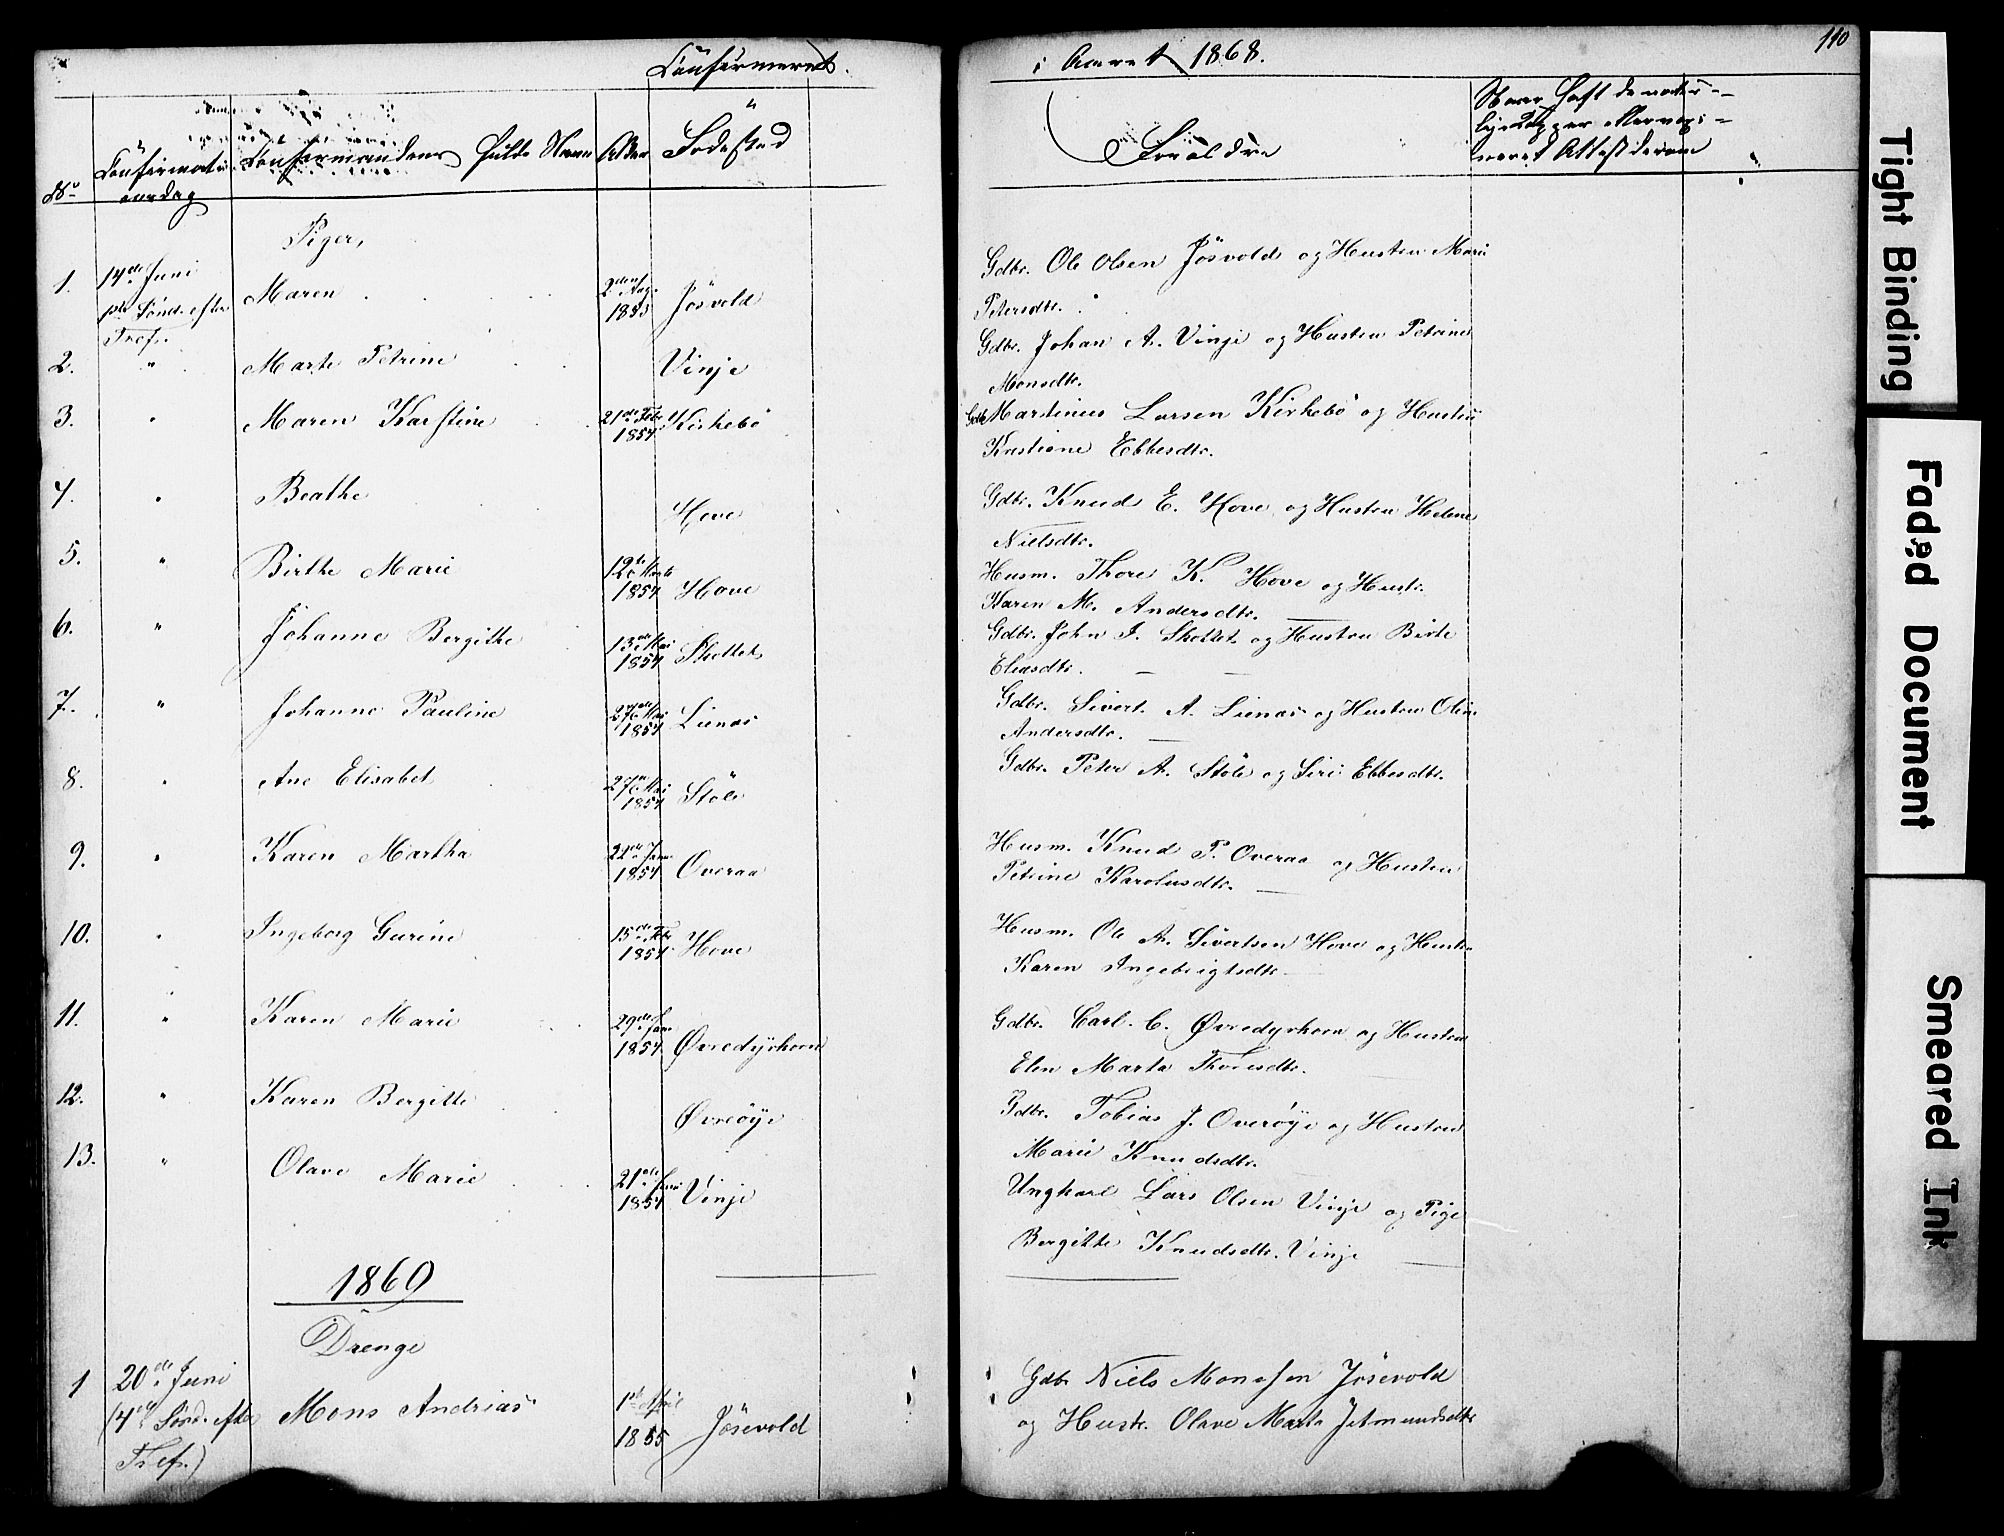 Confirmeret
i Aaret 1868.
110
No
Confirmati-
onsdag
Confirmandens fulde Navn
Alder
Födested
Forældre
Piger,
1. 14de Juni Maren 2den Aug. 1853 Jösvold Gdbr. Ole Olsen Jösvold og Hustru Marie
1ste Sönd. efter Petersdtr.
Tref.
2. " Marte Petrine Vinje Gdbr. Johan A. Vinje og Hustru Petrine
Monsdtr.
3. " Maren Karstine 21de Febr 1854 Kirkebö Gdbr Martinus Larsen Kirkebö og Hustru
Kristiane Ebbesdtr.
4. " Beathe Hove Gdbr. Knud E. Hove og Hustru Helene
Nielsdtr.
5. " Birthe Marie 12te Marts 1854 Hove Husm. Thore K. Hove og Hustr.
Karen M. Andersdtr.
6. " Johanne Bergitte 13de Mai 1854 Skottet Gdbr. John J. Skottet og Hustru Birte
Eliasdtr.
7. " Johanne Pauline 27de Mai 1854 Lienæs Gdbr. Sivert A. Lienæs og Hustru Olin
Andersdtr.
8. " Ane Elisabet 27de Mai 1854 Störe Gdbr. Peter A. Störe og Siri Ebbesdtr.
9. " Karen Martha 22de Janu 1854 Overaa Husm. Knud P. Overaa og Hustru
Petrine Karolusdtr.
10. " Ingeborg Gurine 15de Febr 1854 Hove Husm. Ole A. Sivertsen Hove og Hustr.
Karen Ingebrigtsdtr.
11. " Karen Marie 29de Janu 1854 Øvredyrkorn Gdbr. Carl C. Øvredyrkorn og Hustru
Elen Marta Thoresdtr.
12. " Karen Bergitte Øvreöye Gdbr. Tobias J. Overöye og Hustru
Marie Knudsdtr.
13. " Olave Marie 21de 1854 Vinje Ungkarl Lars Olsen Vinje og Pige
Bergitte Knudsdtr. Vinje
1869
Drenge
1 20de Juni Mons Andrias 1ste April 1855 Jösevold Gdbr Niels Monsen Jösevold
(4de Sönd. efter og Hustr. Olave Marta Jetmundsdtr
Tref.)
Tight Binding
Faded Document
Smeared Ink